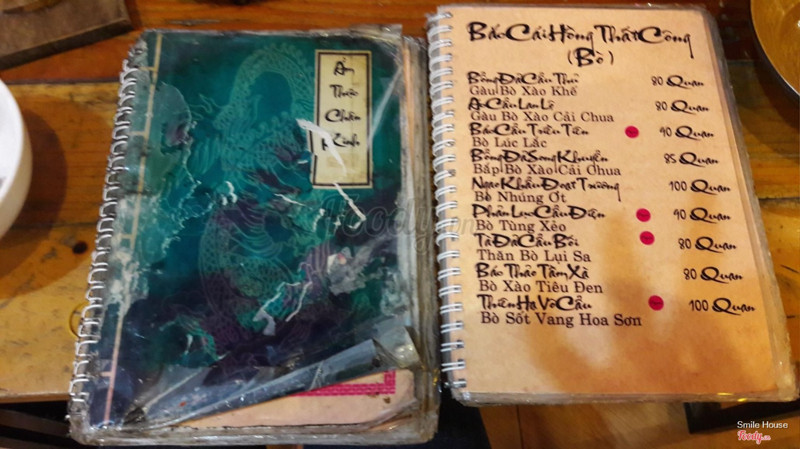 Ẩm
Thực
Chân
Kinh
Bắc Cái Hồng Thất Công
(Bò)
Bổng Đả Cẩu Thủ 80 Quan
Gàu Bò Xào Khế
Ác Cẩu Lan Lộ 80 Quan
Gàu Bò Xào Cải Chua
Bát Cẩu Triều Tiên 90 Quan
Bò Lúc Lắc
Bổng Đả Song Khuyển 85 Quan
Bắp Bò Xào Cải Chua
Ngao Khẩu Đoạt Trượng 100 Quan
Bò Nhúng Ớt
Phản Lục Cẩu Điên 90 Quan
Bò Tùng Xẻo
Tà Đả Cẩu Bối 80 Quan
Thăn Bò Lụi Sa
Bát Thảo Tầm Xà 80 Quan
Bò Xào Tiêu Đen
Thiên Hạ Vô Cẩu 100 Quan
Bò Sốt Vang Hoa Sơn
foody.vn
Smile House
foody.vn